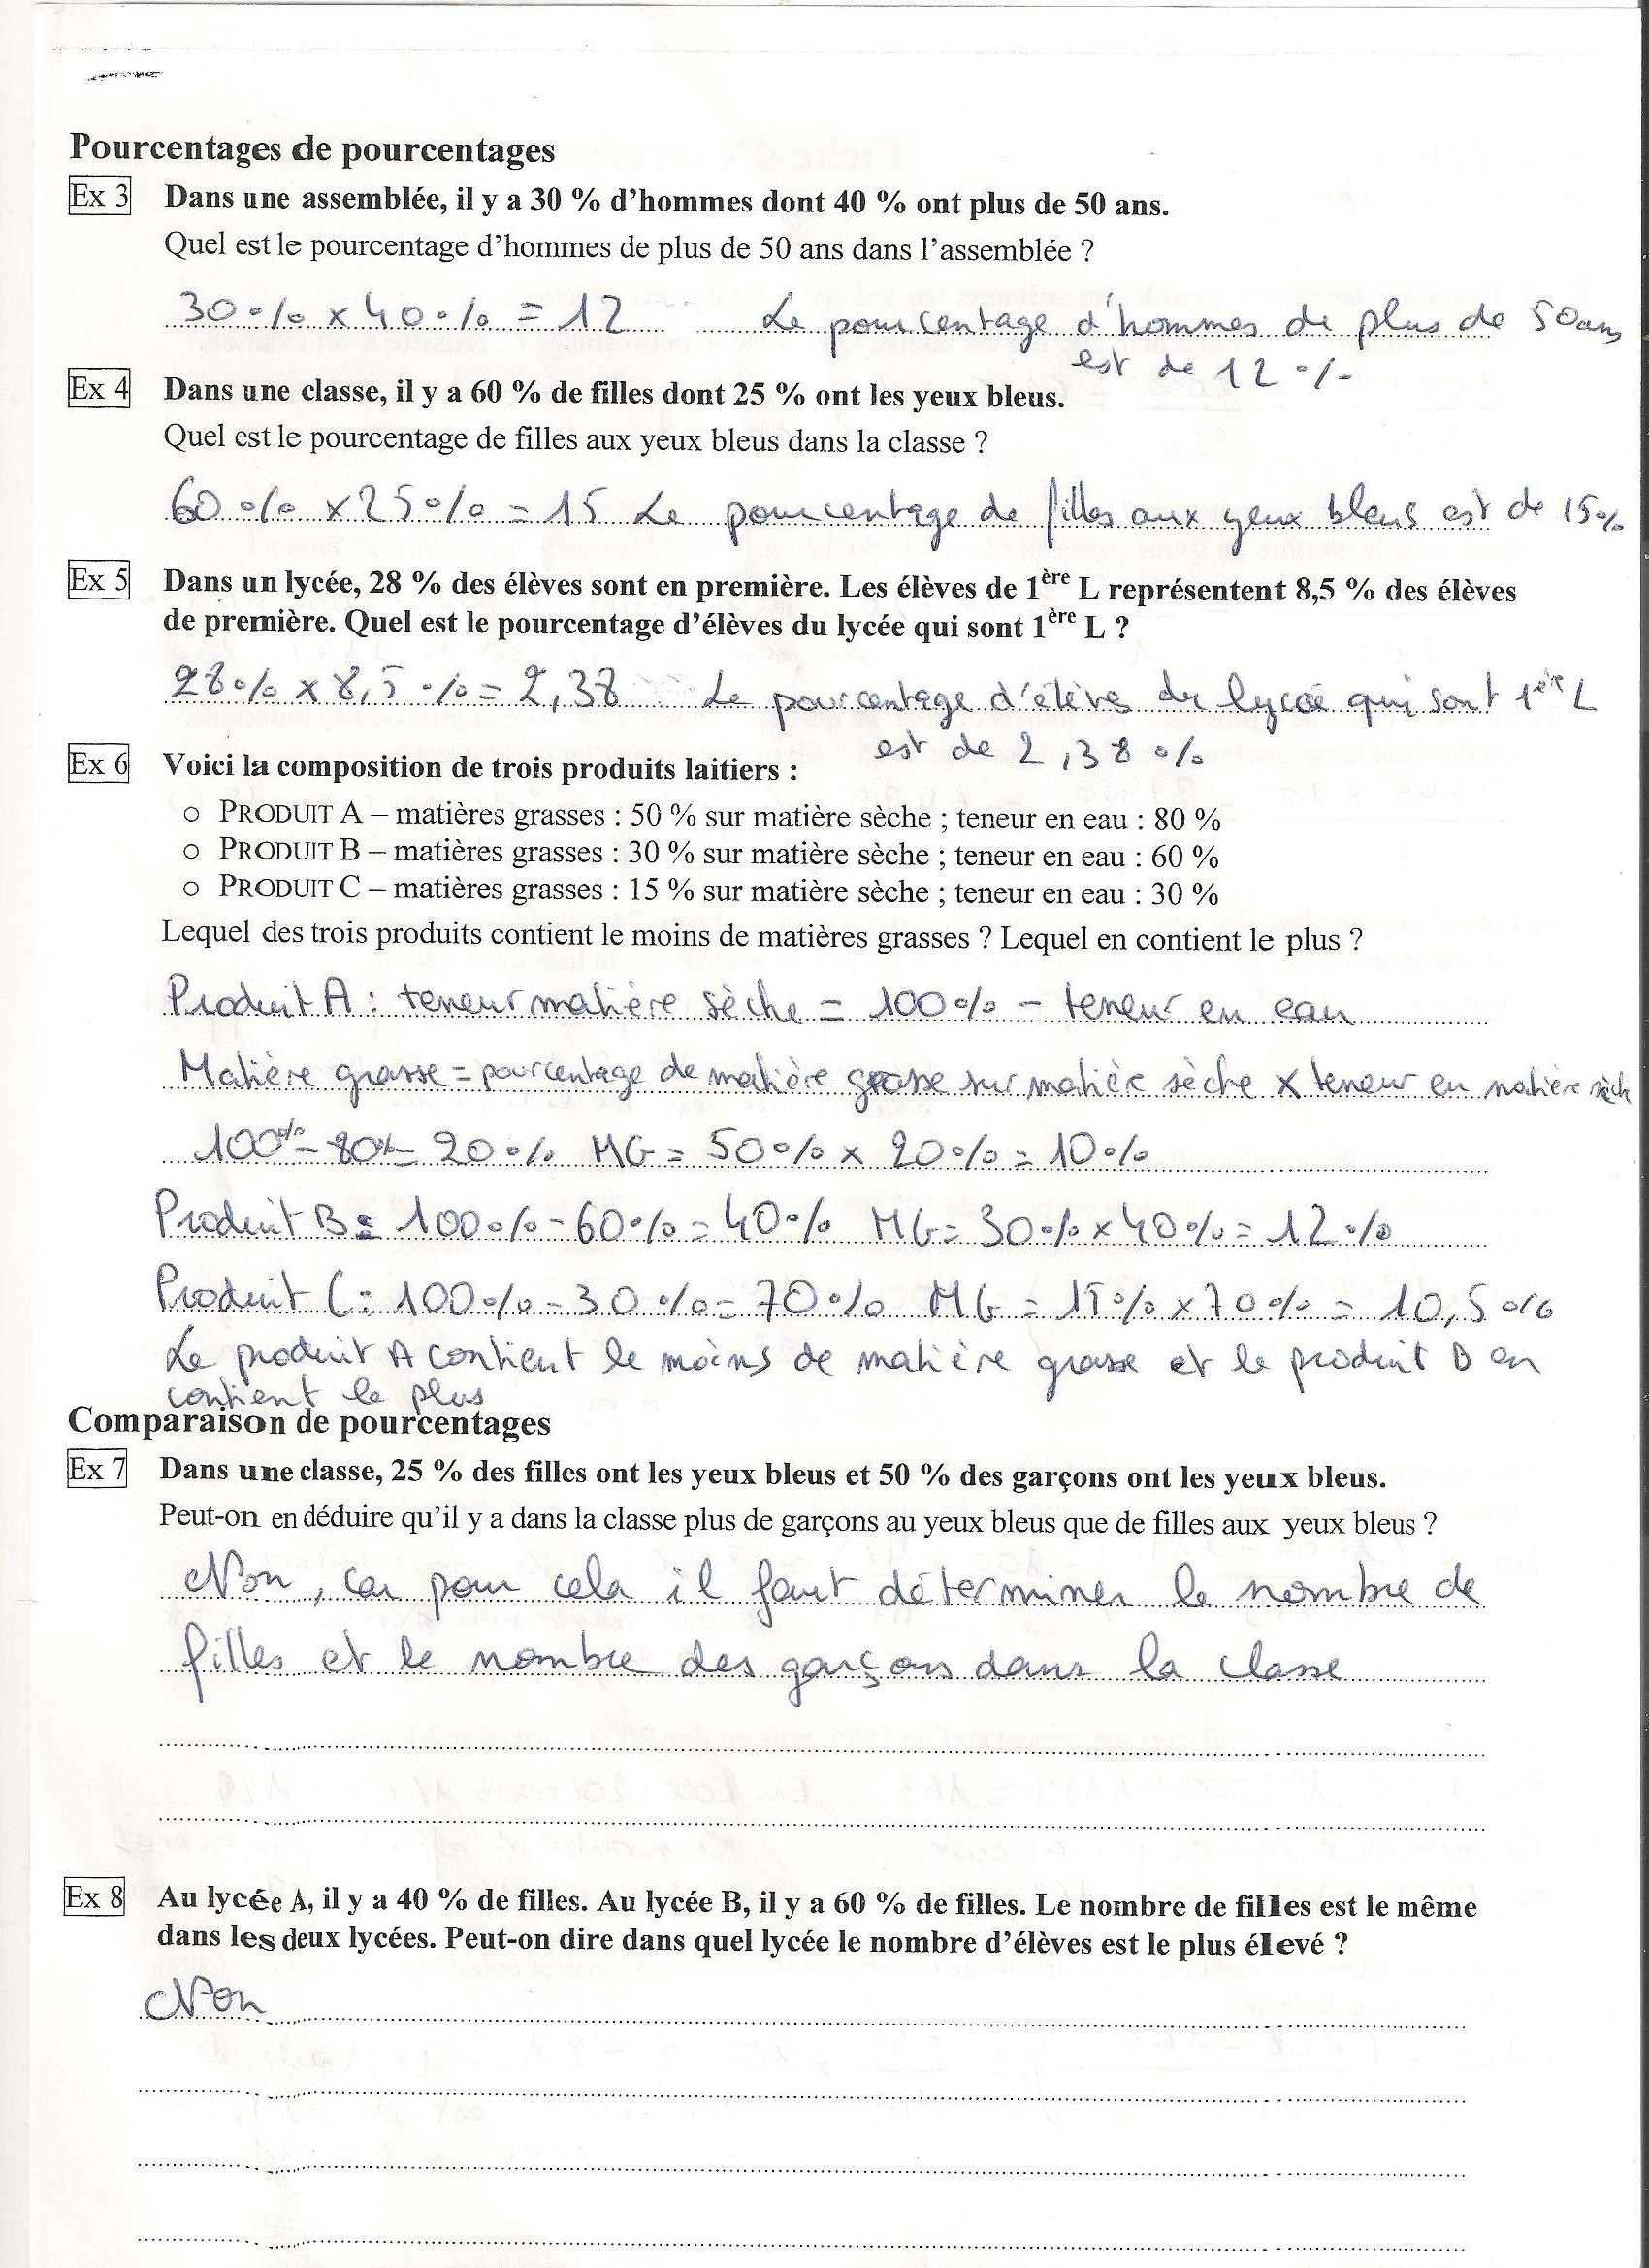 Pourcentages de pourcentages
Ex 3 Dans une assemblée, il y a 30 % d'hommes dont 40 % ont plus de 50 ans.
Quel est le pourcentage d'hommes de plus de 50 ans dans l'assemblée ?
30 % x 40 % = 12 Le pourcentage d'hommes de plus de 50 ans
est de 12 %
Ex 4 Dans une classe, il y a 60 % de filles dont 25 % ont les yeux bleus.
Quel est le pourcentage de filles aux yeux bleus dans la classe ?
60 % x 25 % = 15 Le pourcentage de filles aux yeux bleus est de 15%
Ex 5 Dans un lycée, 28 % des élèves sont en première. Les élèves de 1ère L représentent 8,5 % des élèves
de première. Quel est le pourcentage d'élèves du lycée qui sont 1ère L ?
28 % x 8,5 % = 2,38 Le pourcentage d'élève du lycée qui sont 1ère L
est de 2,38 %
Ex 6 Voici la composition de trois produits laitiers :
o PRODUIT A – matières grasses : 50 % sur matière sèche ; teneur en eau : 80 %
o PRODUIT B – matières grasses : 30 % sur matière sèche ; teneur en eau : 60 %
o PRODUIT C – matières grasses : 15 % sur matière sèche ; teneur en eau : 30 %
Lequel des trois produits contient le moins de matières grasses ? Lequel en contient le plus ?
Produit A : teneur matière sèche = 100 % - teneur en eau
Matière grasse = pourcentage de matière grasse sur matière sèche x teneur en matière sèch
100% - 80% = 20 % MG = 50 % x 20 % = 10 %
Produit B : 100 % - 60 % = 40 % MG = 30 % x 40 % = 12 %
Produit C : 100 % - 30 % = 70 % MG = 15 % x 70 % = 10,5 %
Le produit A contient le moins de matière grasse et le produit B en
contient le plus
Comparaison de pourcentages
Ex 7 Dans une classe, 25 % des filles ont les yeux bleus et 50 % des garçons ont les yeux bleus.
Peut-on en déduire qu'il y a dans la classe plus de garçons au yeux bleus que de filles aux yeux bleus ?
Non, car pour cela il faut déterminer le nombre de
filles et le nombre des garçons dans la classe
Ex 8 Au lycée A, il y a 40 % de filles. Au lycée B, il y a 60 % de filles. Le nombre de filles est le même
dans les deux lycées. Peut-on dire dans quel lycée le nombre d'élèves est le plus élevé ?
Non